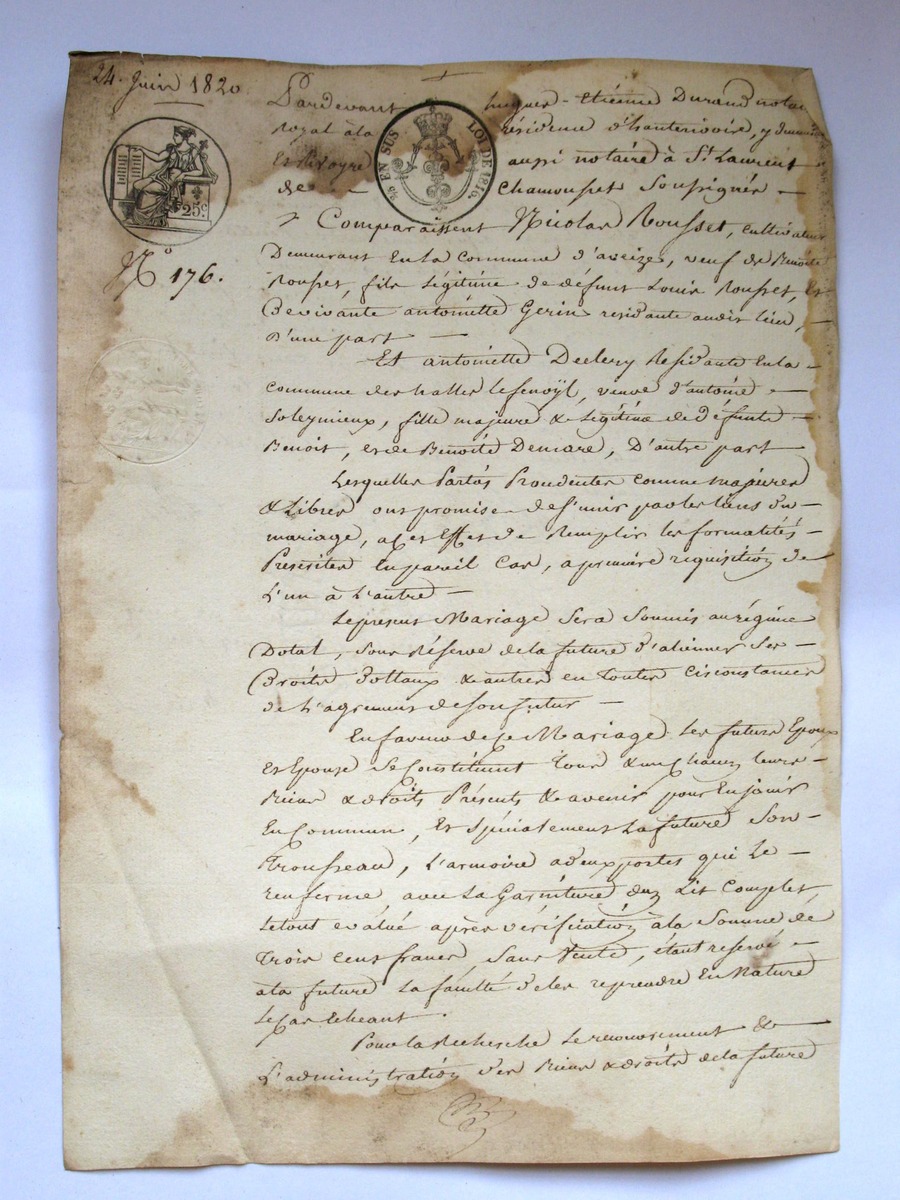 24. Juin 1820
25c
N° 176.
2/10 EN SUS LOI DE 1816.
Pardevant hugues-Etienne Durand notaire
royal à la résidence d'hauterivoire, y demeurant
Et Mr Voyre aussi notaire à St Laurent
de Chamousset soussignés
Comparaissent Nicolas Rousset, cultivateur
Demeurant En la commune d'aveize, veuf de Benoite
rousset, fils légitime de défunt Louis rousset, et
De vivante antoinette Gerin residante audit lieu,
D'une part
Et antoinette Declery Residante En la
commune des halles lefenoÿl, veuve d'antoine
Soleymieux, fille majeure & légitime de Défunts
Benoit, et de Benoite Demare, D'autre part
Lesquelles Parties Procedentes comme majeures
& Libres ont promis de s'unir par les liens du
mariage, a cet Effet de Remplir les formalités
Prescrites En pareil Cas, a première requisition de
L'un à L'autre
Le present Mariage Sera Soumis au régime
Dotal, Sous Réserve de la future d'aliener Ses
Droits Dottaux & autres en toutes Circonstances
de L'agrement de son futur
En faveur de ce Mariage Les futurs Epoux
Et Epouse Se Constituent tous & un Chacun leurs
Biens & droits Présents & avenir pour En jouir
En Commun, Et Spécialement La future Son
Trousseau, L'armoire a deux portes qui Le
renferme, avec la Garniture d'un Lit Complet,
le tout evalué après vérification à la Somme de
Trois Cens francs Sans Vente, étant réservé
à la future La faculté de les reprendre En Nature
Le Cas Echeant.
Pour la Recherche Le recouvrement &
L'administration des Biens & droits de la future